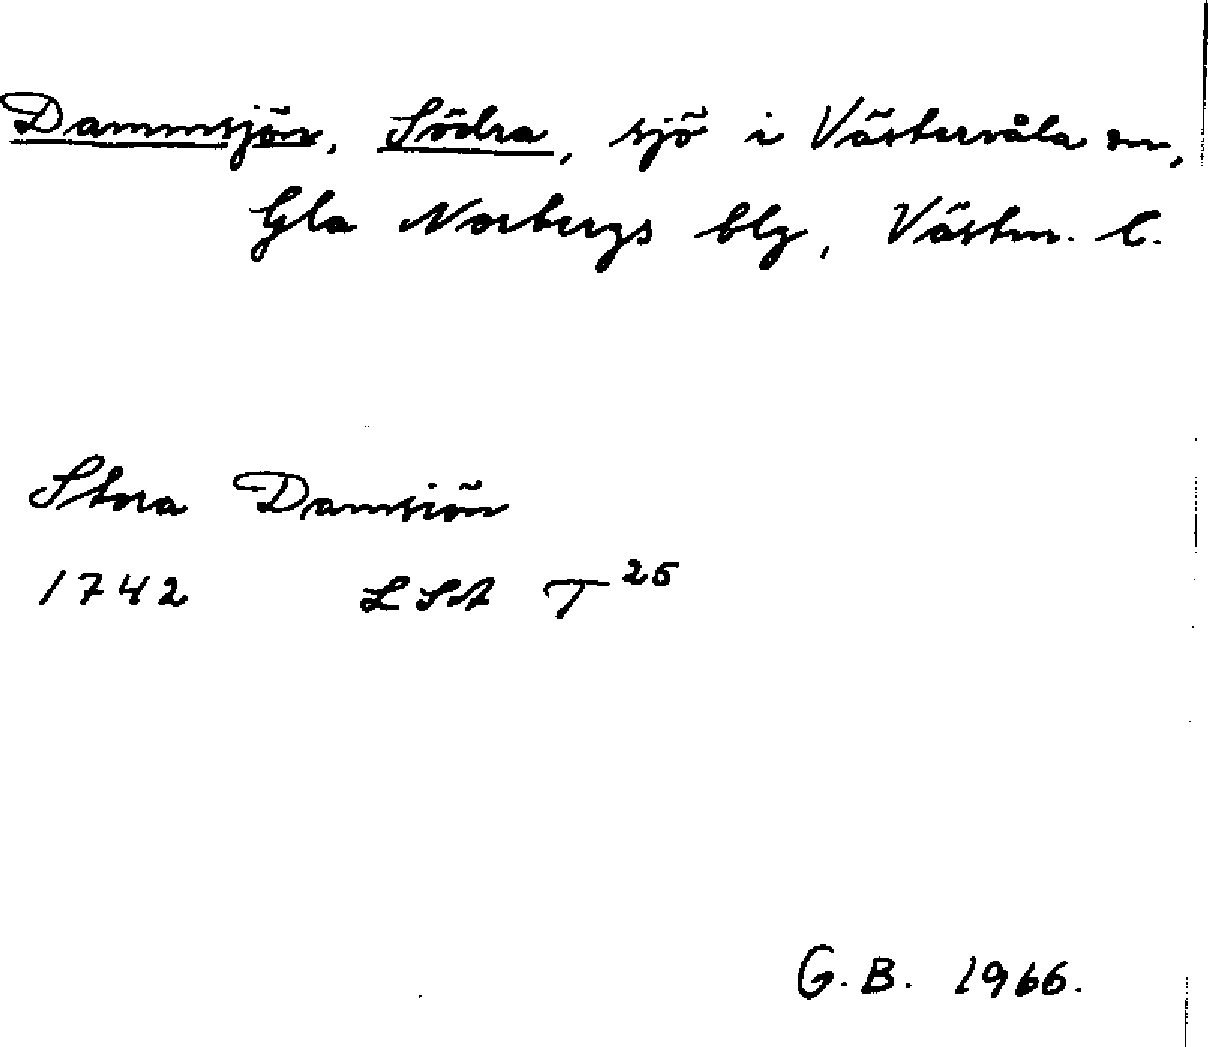 Dammsjön, Södra, sjö i Västervåla sn,
Gla Norbergs blg, Västm. l.
Stora Damsiön
1742 LSA T 25
G.B. 1966.